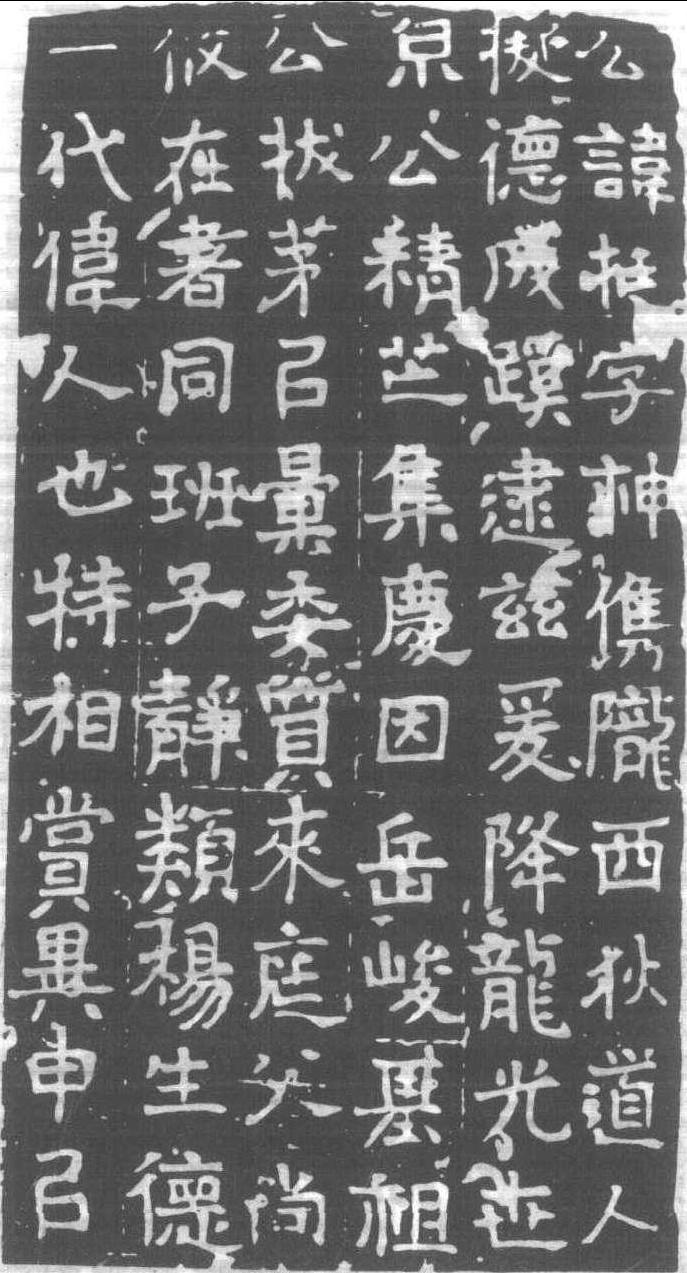 公諱挺字神儁隴西狄道人
擬德成蹊逮茲爰降龍光世
京公精芒集慶因岳峻基祖
公拔茅㠯彙委質來庭父尚
攸在著同班子靜類楊生德
一代偉人也特相賞異申㠯